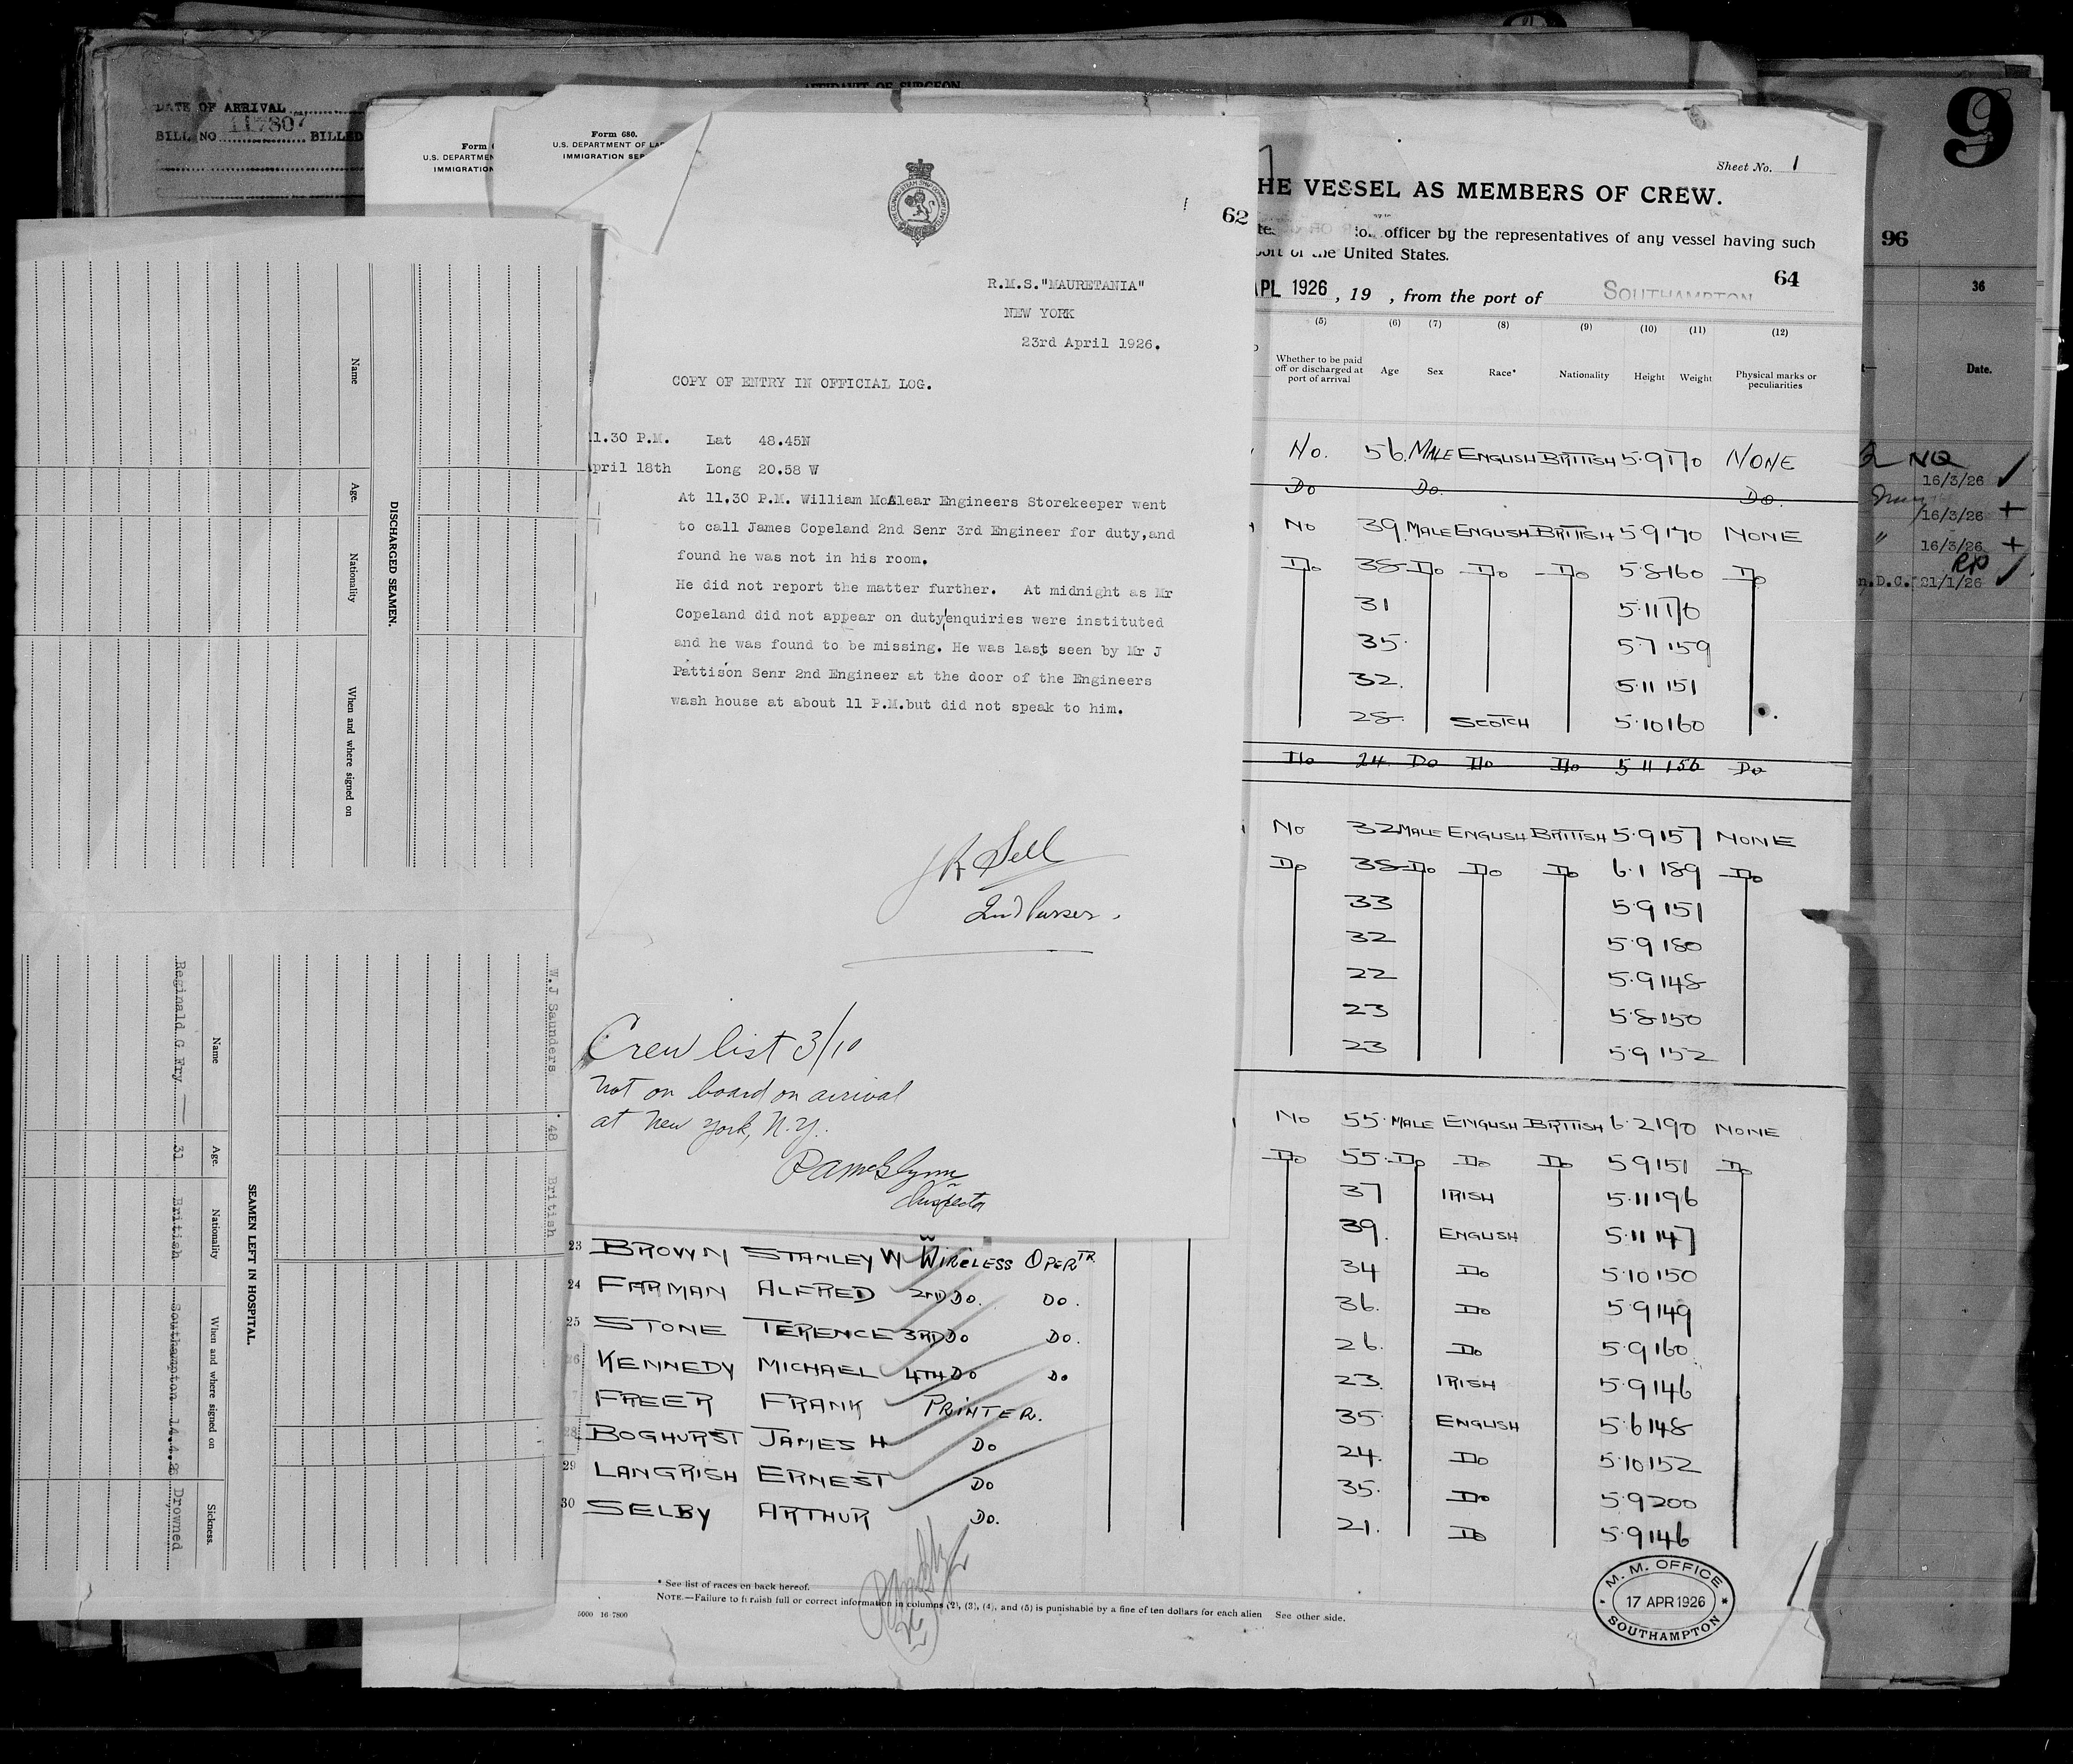 DATE OF ARRIVAL
BILL NO 117807 BILLED
AFFIDAVIT OF SURGEON
U.S. DEPARTMEN
IMMIGRATION
Form 680.
U.S. DEPARTMENT OF LA
IMMIGRATION SER
62
R.M.S."MAURETANIA"
NEW YORK
23rd April 1926.
COPY OF ENTRY IN OFFICIAL LOG.
11.30 P.M. Lat 48.45N
April 18th Long 20.58 W
At 11.30 P.M. William McAlear Engineers Storekeeper went
to call James Copeland 2nd Senr 3rd Engineer for duty,and
found he was not in his room.
He did not report the matter further. At midnight as Mr
Copeland did not appear on duty enquiries were instituted
and he was found to be missing. He was last seen by Mr J
Pattison Senr 2nd Engineer at the door of the Engineers
wash house at about 11 P.M.but did not speak to him.
J R Sell
2nd Purser.
Crew list 3/10
Not on board on arrival
at New York, N.Y.
Inspector
Sheet No. 1
HE VESSEL AS MEMBERS OF CREW.
officer by the representatives of any vessel having such
port of the United States.
64
APL 1926, 19 , from the port of SOUTHAMPTON
(5) (6) (7) (8) (9) (10) (11) (12)
Whether to be paid off or discharged at port of arrival Age Sex Race* Nationality Height Weight Physical marks or peculiarities
No. 56. MALE ENGLISH BRITISH 5.9 170 NONE
Do Do. Do.
No 39. MALE ENGLISH BRITISH 5.9 170 NONE
Do 38 Do Do Do 5.8 160 Do
31 5.11 170
35. 5.7 159
32. 5.11 151
28. SCOTCH 5.10 160
Do 24. Do Do Do 5 11 156 Do
No 32 MALE ENGLISH BRITISH 5.9 157 NONE
Do 38 Do Do Do 6.1 189 Do
33 5.9 151
32 5.9 180
22 5.9 148
23 5.8 150
23 5.9 152
No 55. MALE ENGLISH BRITISH 6.2 190 NONE
Do 55. Do Do Do 5.9 151 Do
37 IRISH 5.11 196
39. ENGLISH 5.11 147
23 BROWN STANLEY W WIRELESS OPERTR 34 Do 5.10 150
24 FARMAN ALFRED 2ND DO. DO. 36. Do 5.9 149
25 STONE TERENCE 3RD DO DO. 26. Do 5.9 160
26 KENNEDY MICHAEL 4TH DO DO 23. IRISH 5.9 146
FREER FRANK PRINTER. 35. ENGLISH 5.6 148
28 BOGHURST JAMES H DO 24. Do 5.10 152
29 LANGRISH ERNEST DO 35. Do 5.9 200
30 SELBY ARTHUR DO. 21. Do 5.9 146
* See list of races on back hereof.
NOTE.—Failure to furnish full or correct information in columns (2), (3), (4), and (5) is punishable by a fine of ten dollars for each alien See other side.
5000 16-7800
M. M. OFFICE
17 APR 1926
SOUTHAMPTON
9
96
36
Date.
NQ
16/3/26
16/3/26
" 16/3/26
RP
n.D.C. 21/1/26
DISCHARGED SEAMEN.
Name Age. Nationality When and where signed on
W.J Saunders 48 British
SEAMEN LEFT IN HOSPITAL.
Name Age. Nationality When and where signed on Sickness.
Reginald G Fry 31 British Southampton 14.4.26 Drowned